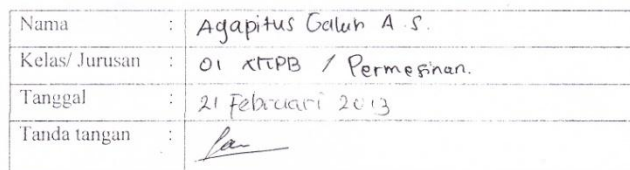 Nama : Agapitus Galuh A.S.
Kelas/ Jurusan : 01 XTPB / Permesinan.
Tanggal : 21 Februari 2013
Tanda tangan :